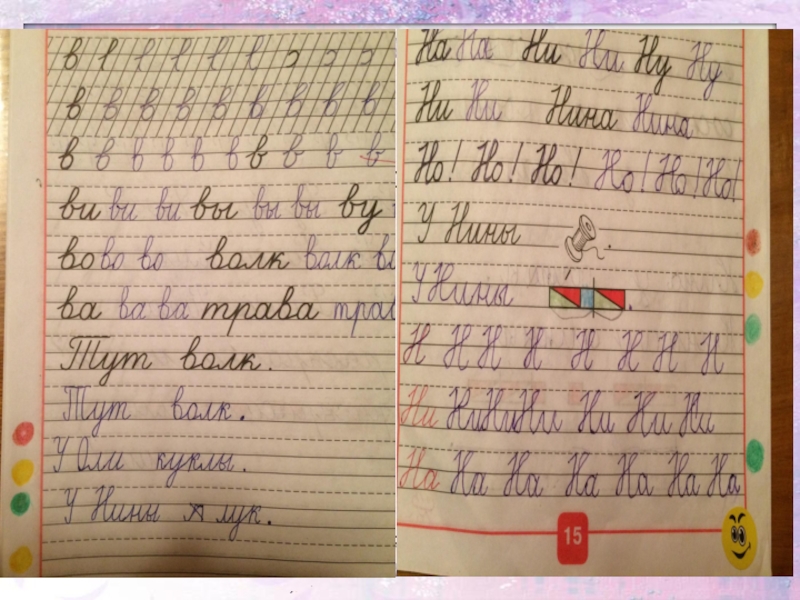 в
в в в в в в в в в
в в в в в в в в в в
ви ви ви вы вы вы ву
во во во волк волк
ва ва ва трава трав
Тут волк.
Тут волк.
У Оли куклы.
У Нины лук.
На На Ни Ни Ну Ну
Ни Ни Нина Нина
Но! Но! Но! Но! Но! Но!
У Нины .
У Нины .
Н Н Н Н Н Н Н Н
Ни Ни Ни Ни Ни Ни Ни
На На На На На На На
15